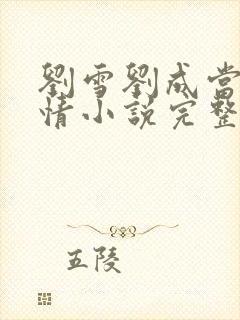 劉雪劉成當
情小說完整
五陵